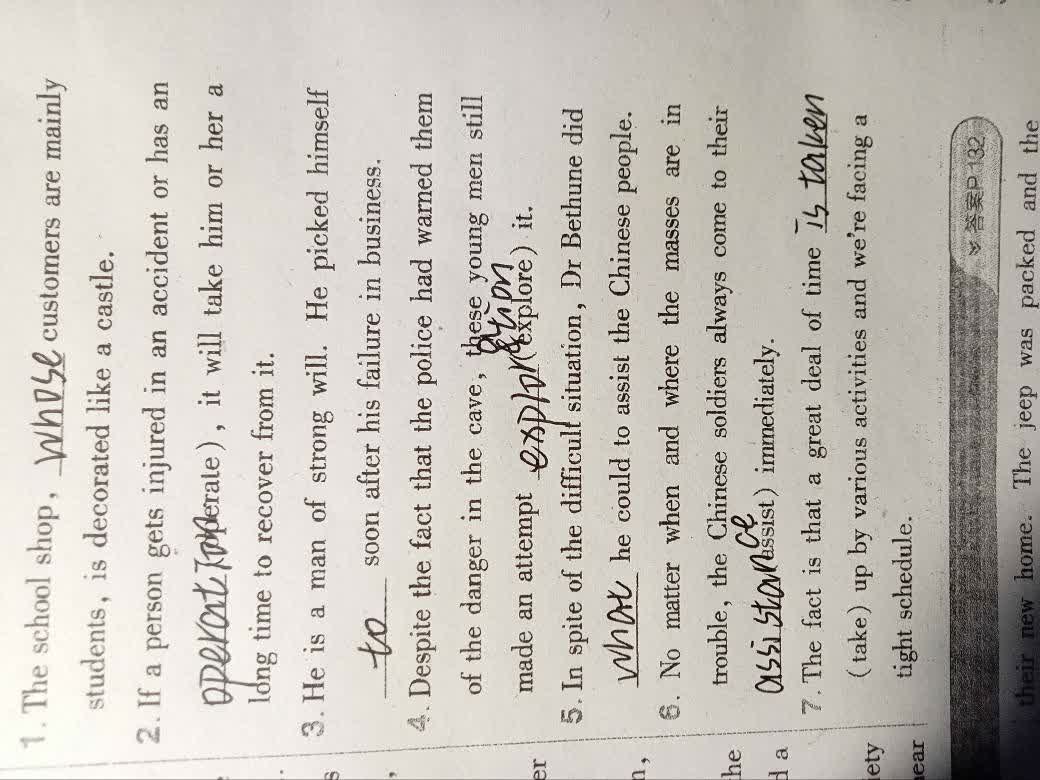 1. The school shop, whose customers are mainly
students, is decorated like a castle.
2. If a person gets injured in an accident or has an
operation (operate), it will take him or her a
long time to recover from it.
3. He is a man of strong will. He picked himself
to soon after his failure in business.
4. Despite the fact that the police had warned them
of the danger in the cave, these young men still
made an attempt exploration (explore) it.
5. In spite of the difficult situation, Dr Bethune did
what he could to assist the Chinese people.
6. No matter when and where the masses are in
trouble, the Chinese soldiers always come to their
assistance (assist) immediately.
7. The fact is that a great deal of time is taken
(take) up by various activities and we're facing a
tight schedule.
答案P.132
their new home. The jeep was packed and the
s
,
er
n,
he
d a
ety
near